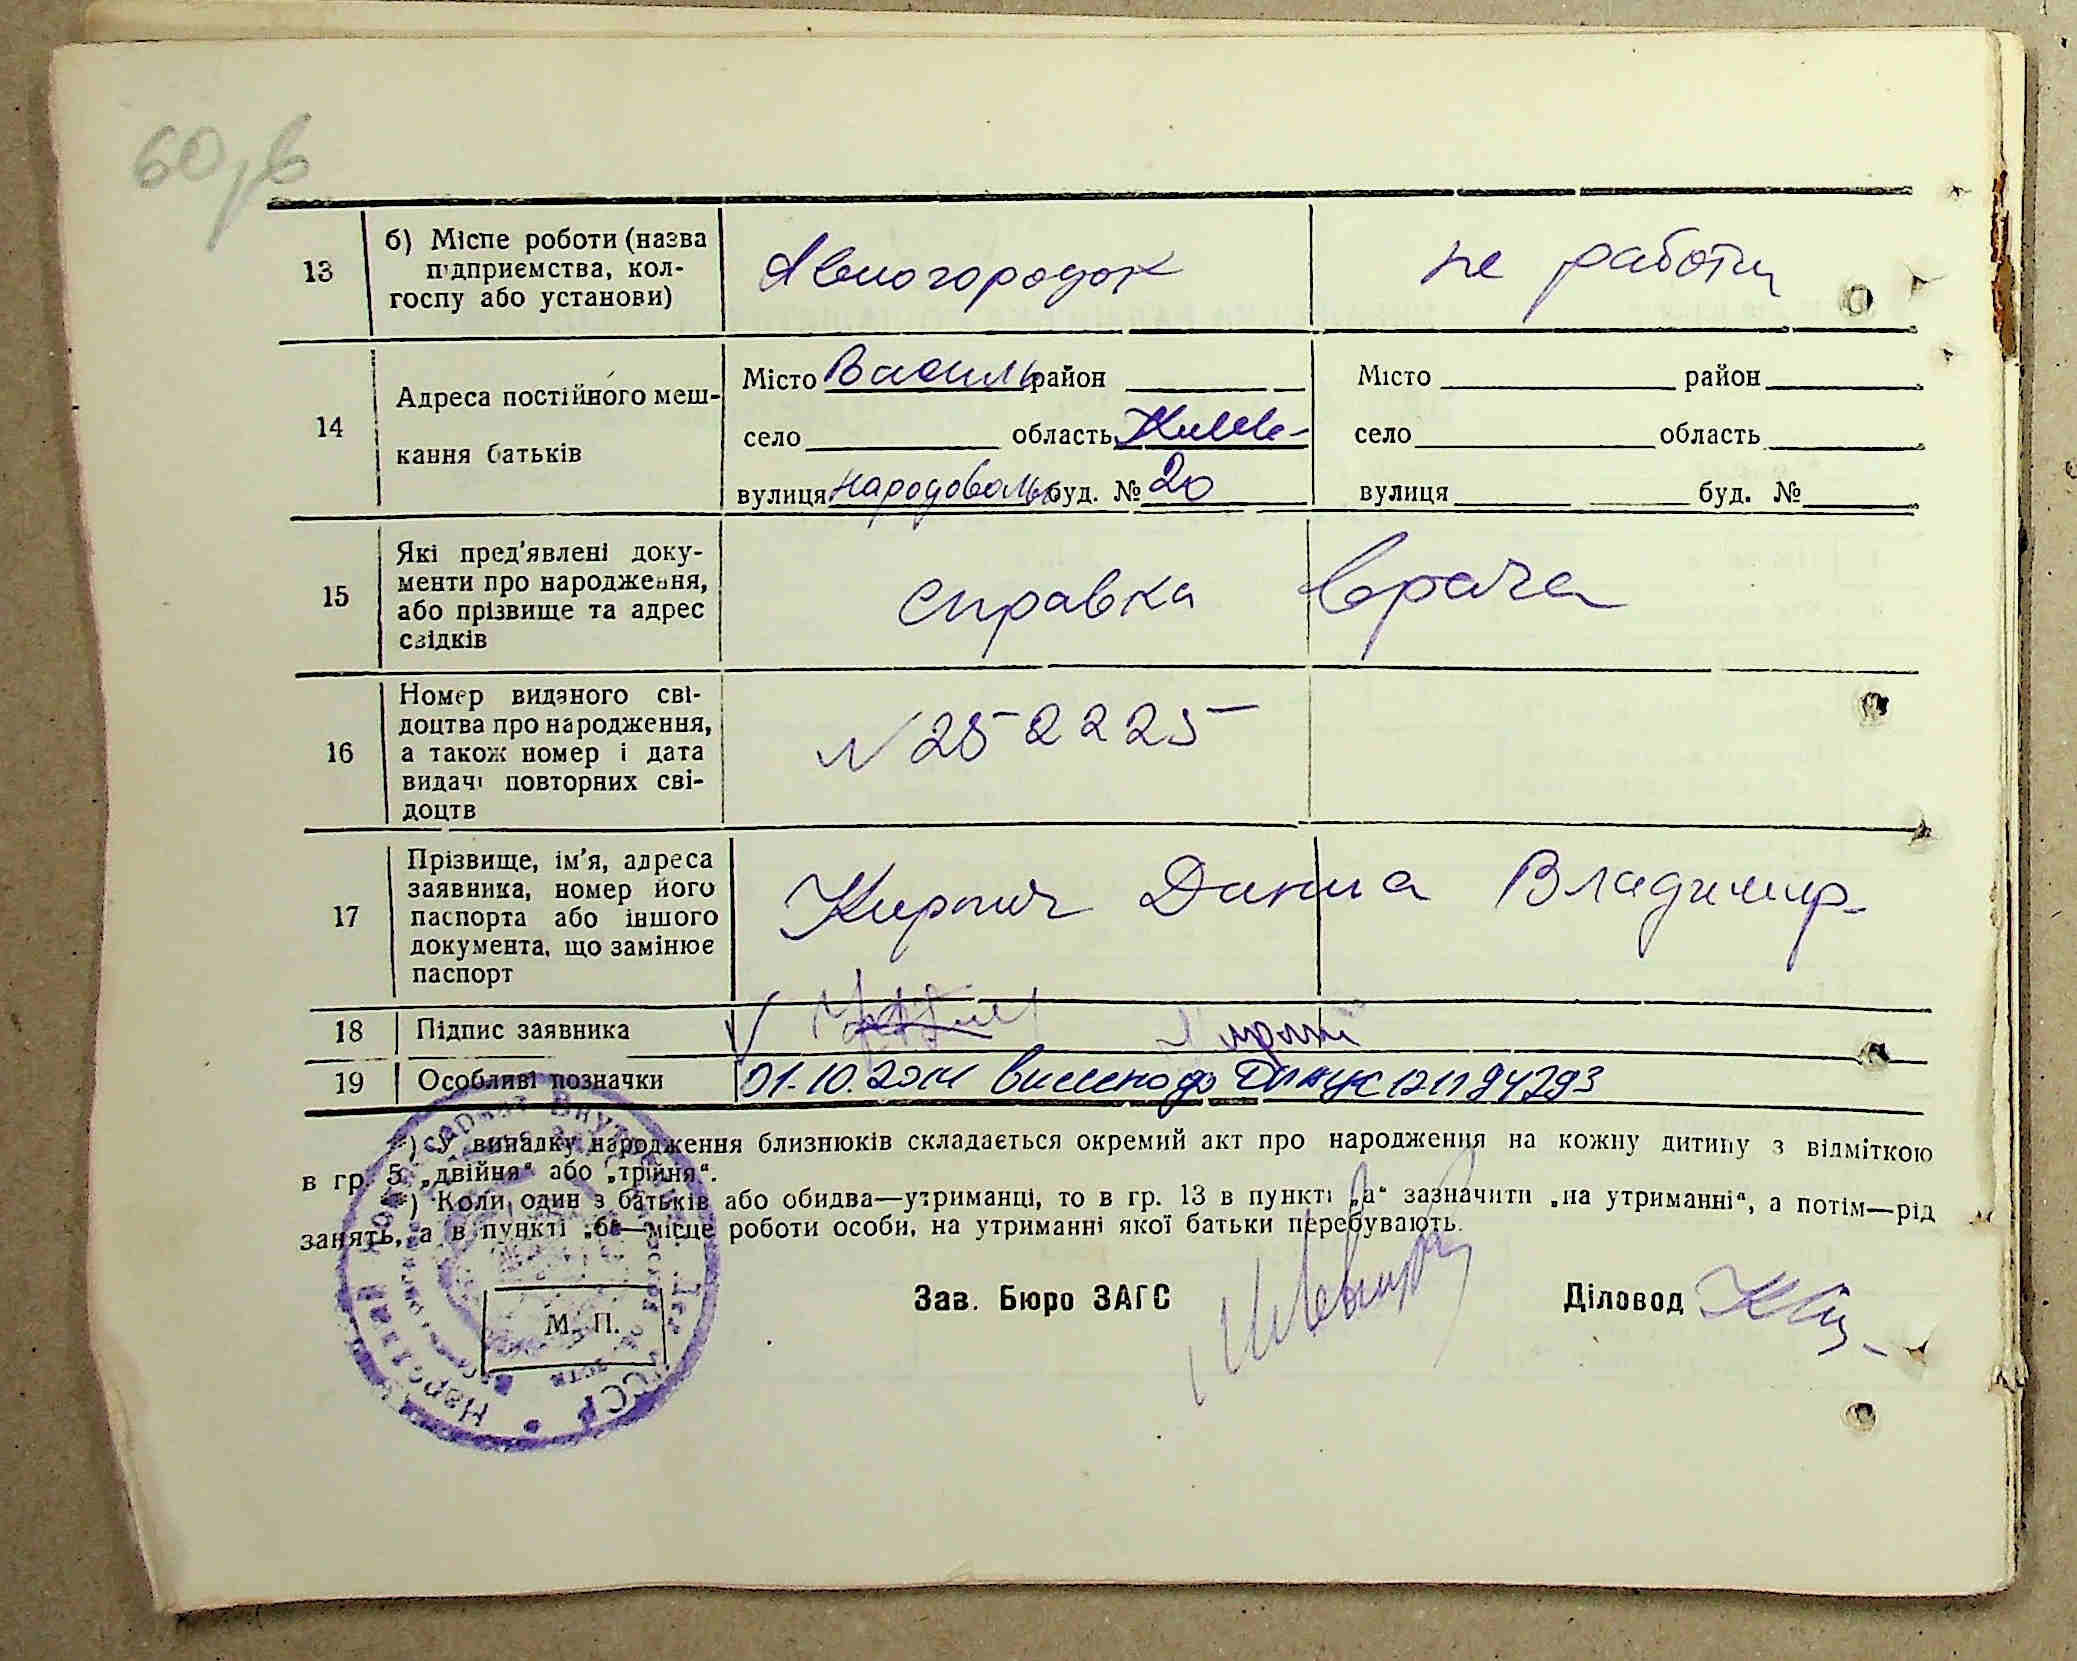 13
б) Місце роботи (назва
підприємства, кол-
госпу або установи)
Авиогородок
не работи
14
Адреса постійного меш-
кання батьків
Місто Василь район
село область Киев-
вулиця народоволь буд. № 20
Місто район
село область
вулиця буд. №
15
Які пред'явлені доку-
менти про народження,
або прізвище та адрес
свідків
справка врача
16
Номер виданого сві-
доцтва про народження,
а також номер і дата
видачі повторних сві-
доцтв
N 252225
17
Прізвище, ім'я, адреса
заявника, номер його
паспорта або іншого
документа, що замінює
паспорт
Кирпич Данил Владимир-
18
Підпис заявника
19
Особливі позначки
01.10.2014 внесено до ДРАЦС
*) У випадку народження близнюків складається окремий акт про народження на кожну дитину з відміткою
в гр. 5 „двійня“ або „трійня“.
**) Коли один з батьків або обидва—утриманці, то в гр. 13 в пункті „а“ зазначити „на утриманні“, а потім—рід
занять, а в пункті „б“—місце роботи особи, на утриманні якої батьки перебувають.
Зав. Бюро ЗАГС
Діловод
М. П.